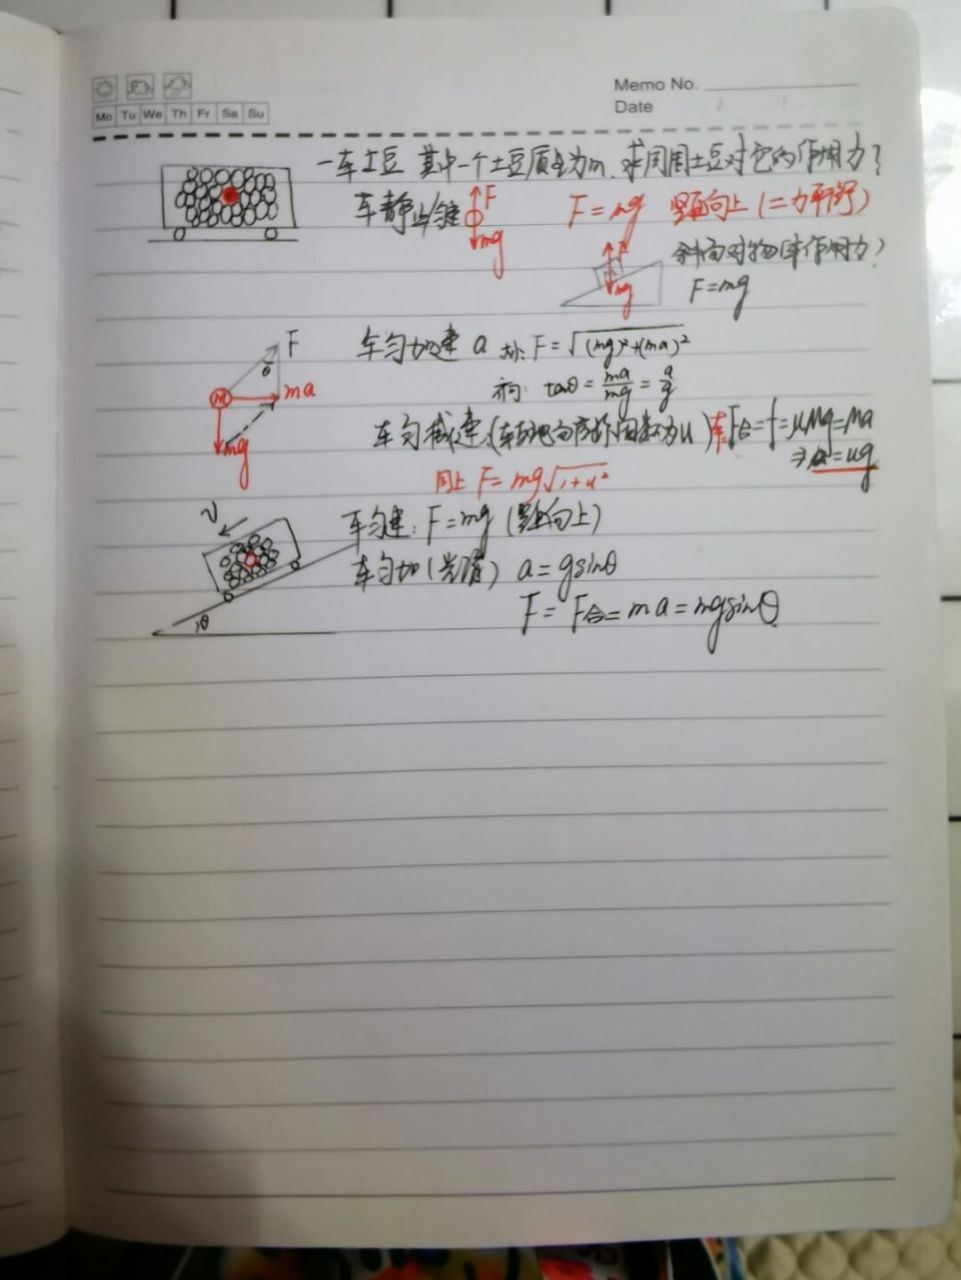 Memo No.
Date
Mo Tu We Th Fr Sa Su
一车土豆 其中一个土豆质量为m,求周围土豆对它的作用力?
车静止/匀速 F mg F=mg 竖直向上(二力平衡)
斜面对物体作用力?
F mg F=mg
F θ m ma mg
车匀加速 a 大小: F=√(mg)²+(ma)²
方向: tanθ=ma/mg=a/g
车匀减速(车与地面摩擦因数为u) 车:F合=f=uMg=Ma
⇒a=ug
同上 F=mg√1+u²
v θ
车匀速: F=mg (竖直向上)
车匀加(光滑) a=gsinθ
F=F合=ma=mgsinθ